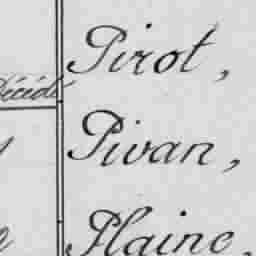 Pirot,
Décédé
Pivan,
Plaine,